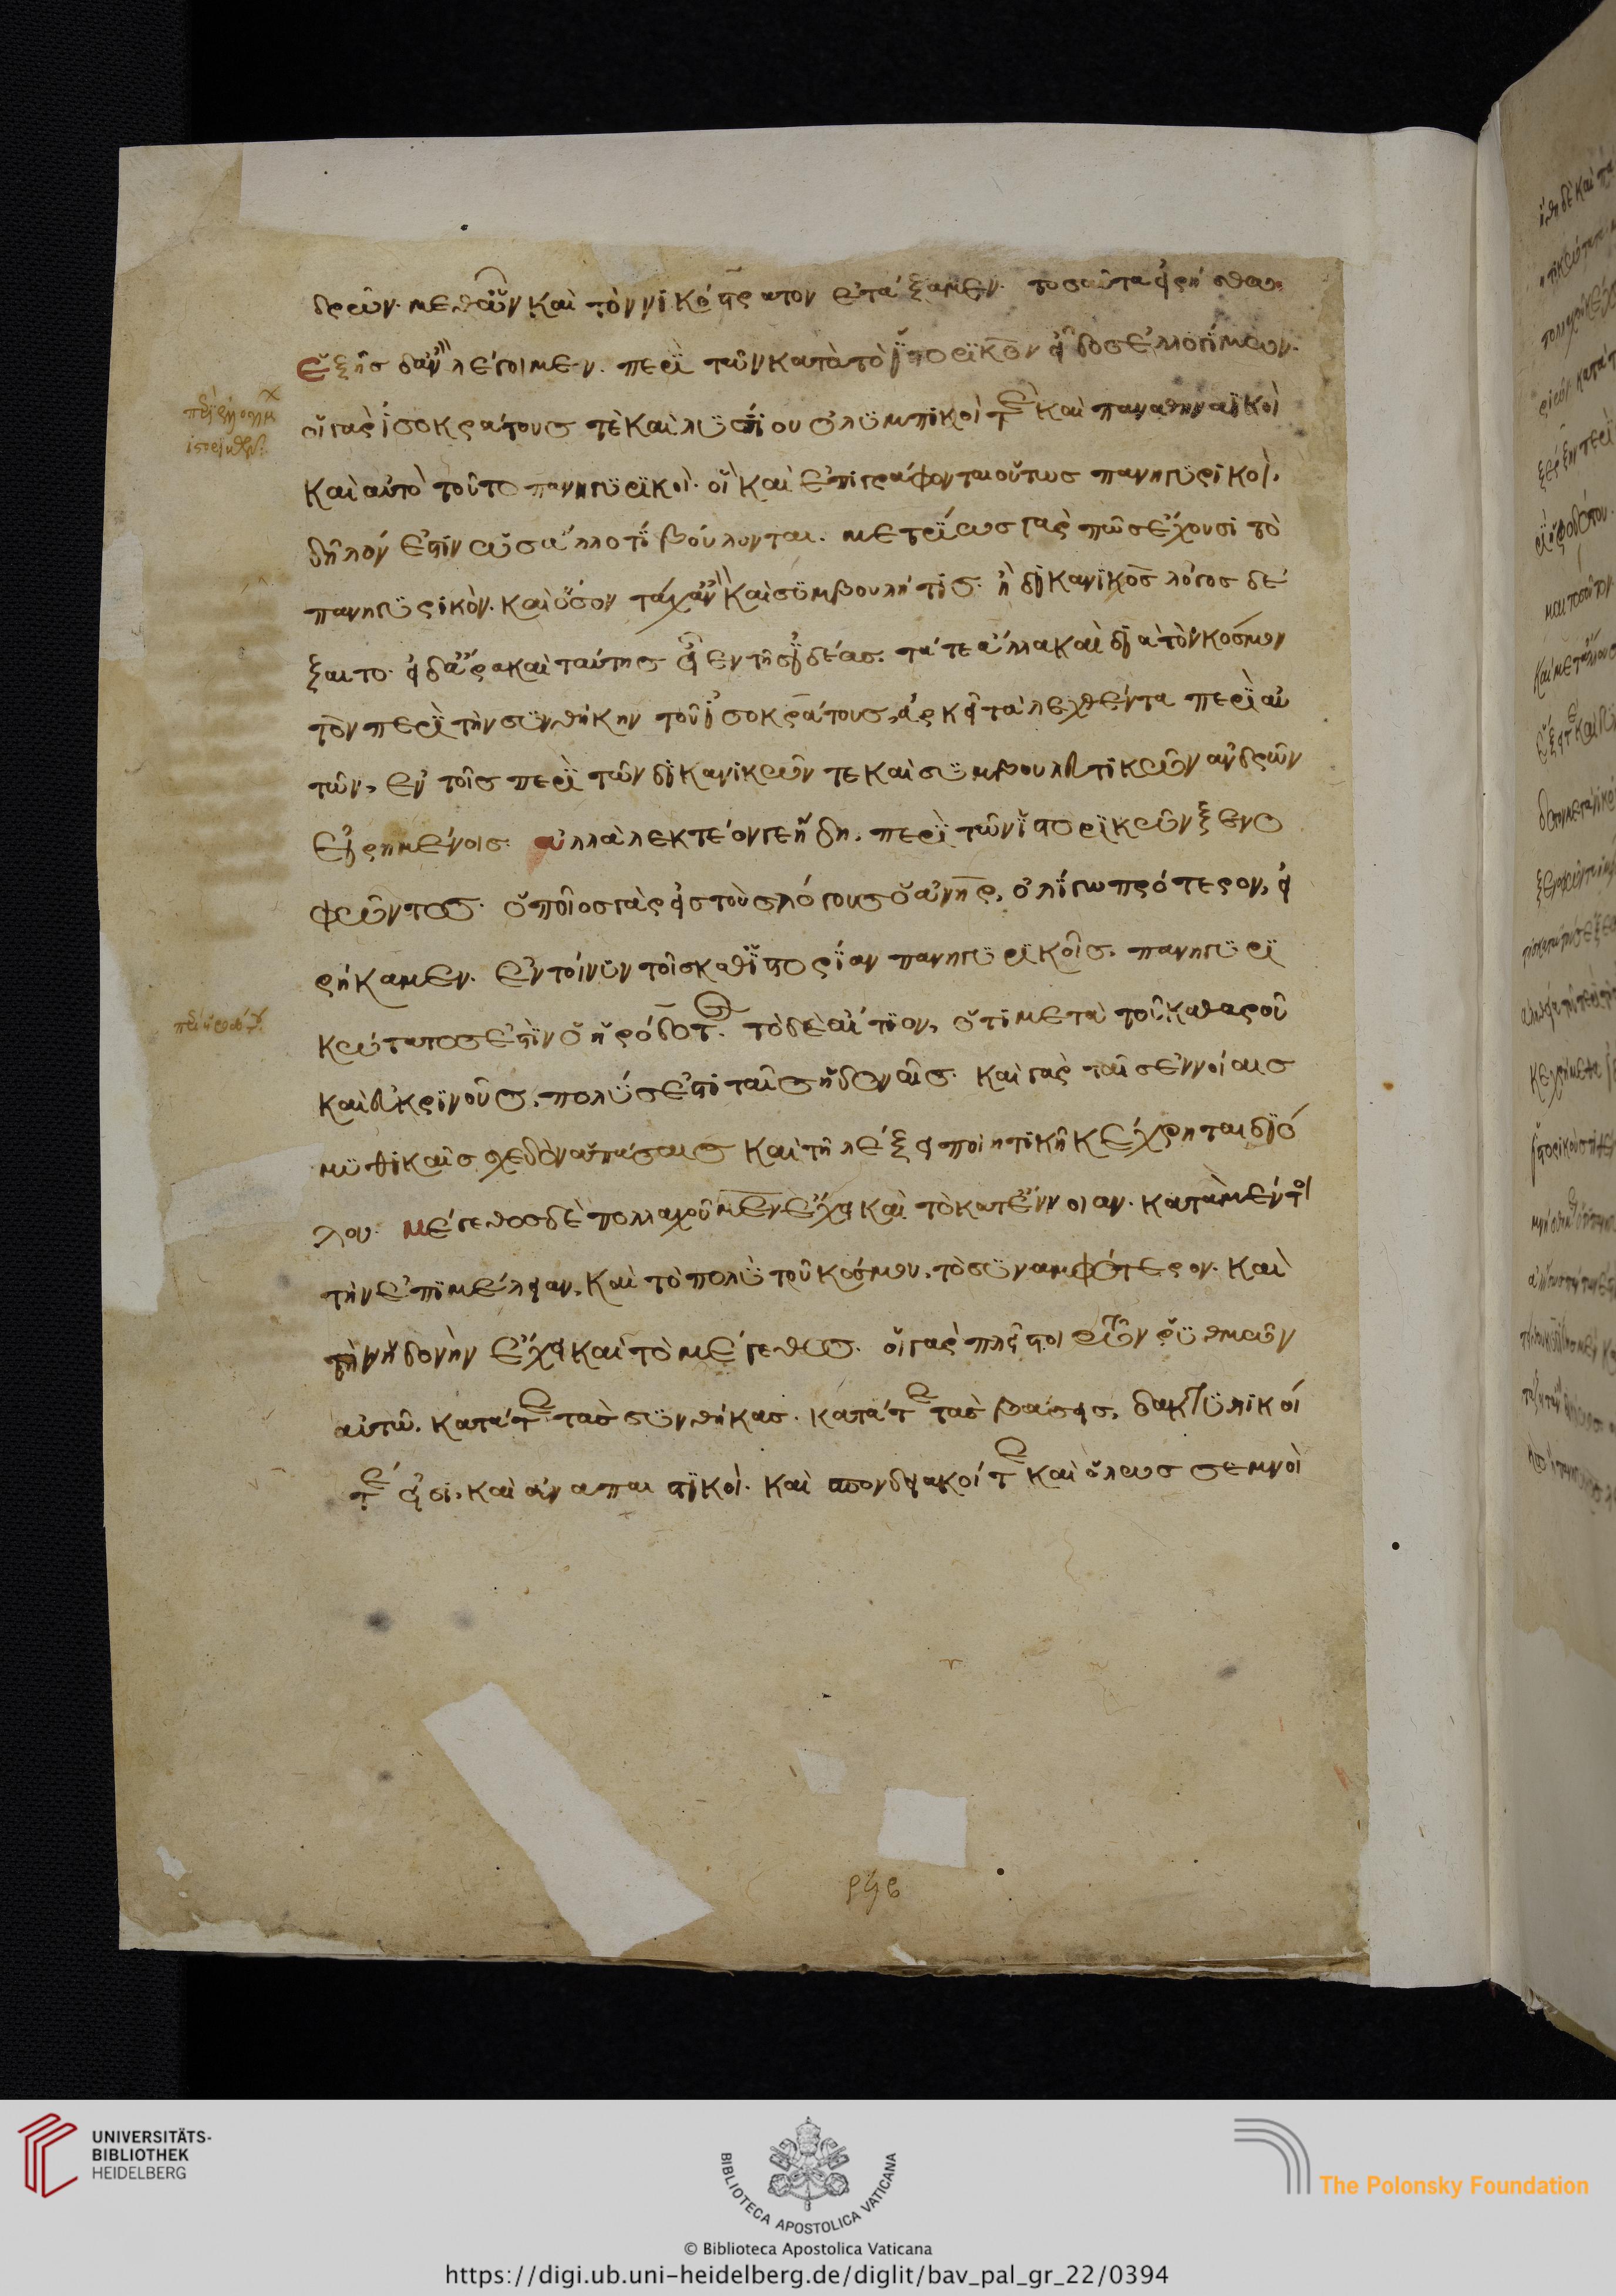 δρῶν. μεθ᾽ὧν καὶ τὸν νικόστρατον ἐτάξαμεν. τοσαῦτα εἰρήσθω.
Ἑξῆς δ᾽ἂν λέγοιμεν. περὶ τῶν κατὰ τὸ ἱστορικὸν εἶδος ἐλλογίμων.
οἱ γὰρ ἰσοκράτους τὲ καὶ λυσίου ὀλυμπικοὶ τὲ καὶ παναθηναϊκοὶ
καὶ αὐτὸ τοῦτο πανηγυρικοὶ. οἳ καὶ ἐπιγράφονται οὕτως πανηγυρικοὶ.
δῆλόν ἐστιν ὡς ἄλλο τί βούλονται. μετρίως γὰρ πῶς ἔχουσι τὸ
πανηγυρικὸν. καὶ ὅσον τάχ᾽ἂν καὶ συμβουλή τις. ἢ δικανικὸς λόγος δέ
ξαιτο. εἰ δ᾽ἄρα καὶ ταύτης εἶεν τῆς ἰδέας. τά τε ἄλλα καὶ διὰ τὸν κόσμον
τὸν περὶ τὴν συνθήκην τοῦ ἰσοκράτους, ἀρκεῖ τὰ λεχθέντα περὶ αὐ
τῶν, ἐν τοῖς περὶ τῶν δικανικῶν τε καὶ συμβουλευτικῶν ἀνδρῶν
εἰρημένοις. ἀλλὰ λεκτέον γε ἤδη. περὶ τῶν ἱστορικῶν ξενο
φῶντος. ὁποῖος γὰρ εἰς τοὺς λόγους ὁ ἀνὴρ, ὀλίγω πρότερον, εἰ
ρήκαμεν. ἐν τοίνυν τοῖς καθ᾽ἱστορίαν πανηγυρικοῖς. πανηγυρι
κώτατος ἐστὶν ὁ ἡρόδοτος. τὸ δὲ αἴτιον, ὅτι μετὰ τοῦ καθαροῦ
καὶ εὐκρινοῦς, πολύς ἐστι ταῖς ἡδοναῖς. καὶ γὰρ ταῖς ἐννοίαις
μυθικαῖς σχεδὸν ἁπάσαις καὶ τῆ λέξει ποιητικῆ κέχρηται διό
λου. μέγεθος δὲ πολλαχοῦ μὲν ἔχει καὶ τὸ κατ᾽ἔννοιαν. κατὰ μέντοι
τὴν ἐπιμέλειαν, καὶ τὸ πολὺ τοῦ κόσμου, τὸ συναμφότερον. καὶ
τὴν ἡδονὴν ἔχει καὶ τὸ μέγεθος. οἱ γὰρ πλεῖστοι τῶν ῥυθμῶν
αὐτῶ. κατά τε τὰς συνθήκας. κατά τε τὰς βάσεις, δακτυλικοί
τέ εἰσι, καὶ ἀναπαιστικοὶ. καὶ σπονδειακοί τε καὶ ὅλως σεμνοὶ
UNIVERSITÄTS-
BIBLIOTHEK
HEIDELBERG
BIBLIOTECA APOSTOLICA VATICANA
The Polonsky Foundation
© Biblioteca Apostolica Vaticana
https://digi.ub.uni-heidelberg.de/diglit/bav_pal_gr_22/0394